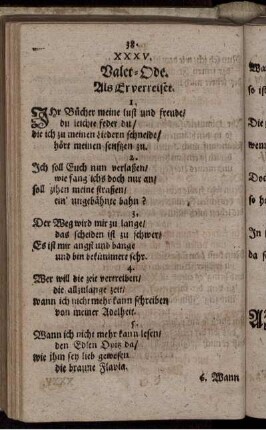 38.
XXXV.
Valet-Ode.
Als Er verreiset.
1.
IHr Bücher meine lust und freude/
du leichte feder du/
die ich zu meinen Liedern schneide/
hört meinen seufzen zu.
2.
Ich soll Euch nun verlaßen/
wie fang ichs doch nur an/
soll zihen meine straßen/
ein' ungebähnte bahn?
3.
Der Weg wird mir zu lange/
das scheiden ist zu schwer/
Es ist mir angst und bange
und bin bekümmert sehr.
4.
Wer will die zeit vertreiben/
die allzulange zeit/
wann ich nicht mehr kann schreiben
von meiner Adelheit.
5.
Wann ich nicht mehr kann lesen/
den Edlen Opitz da/
wie ihm sey lieb gewesen
die braune Flavia.
6. Wann